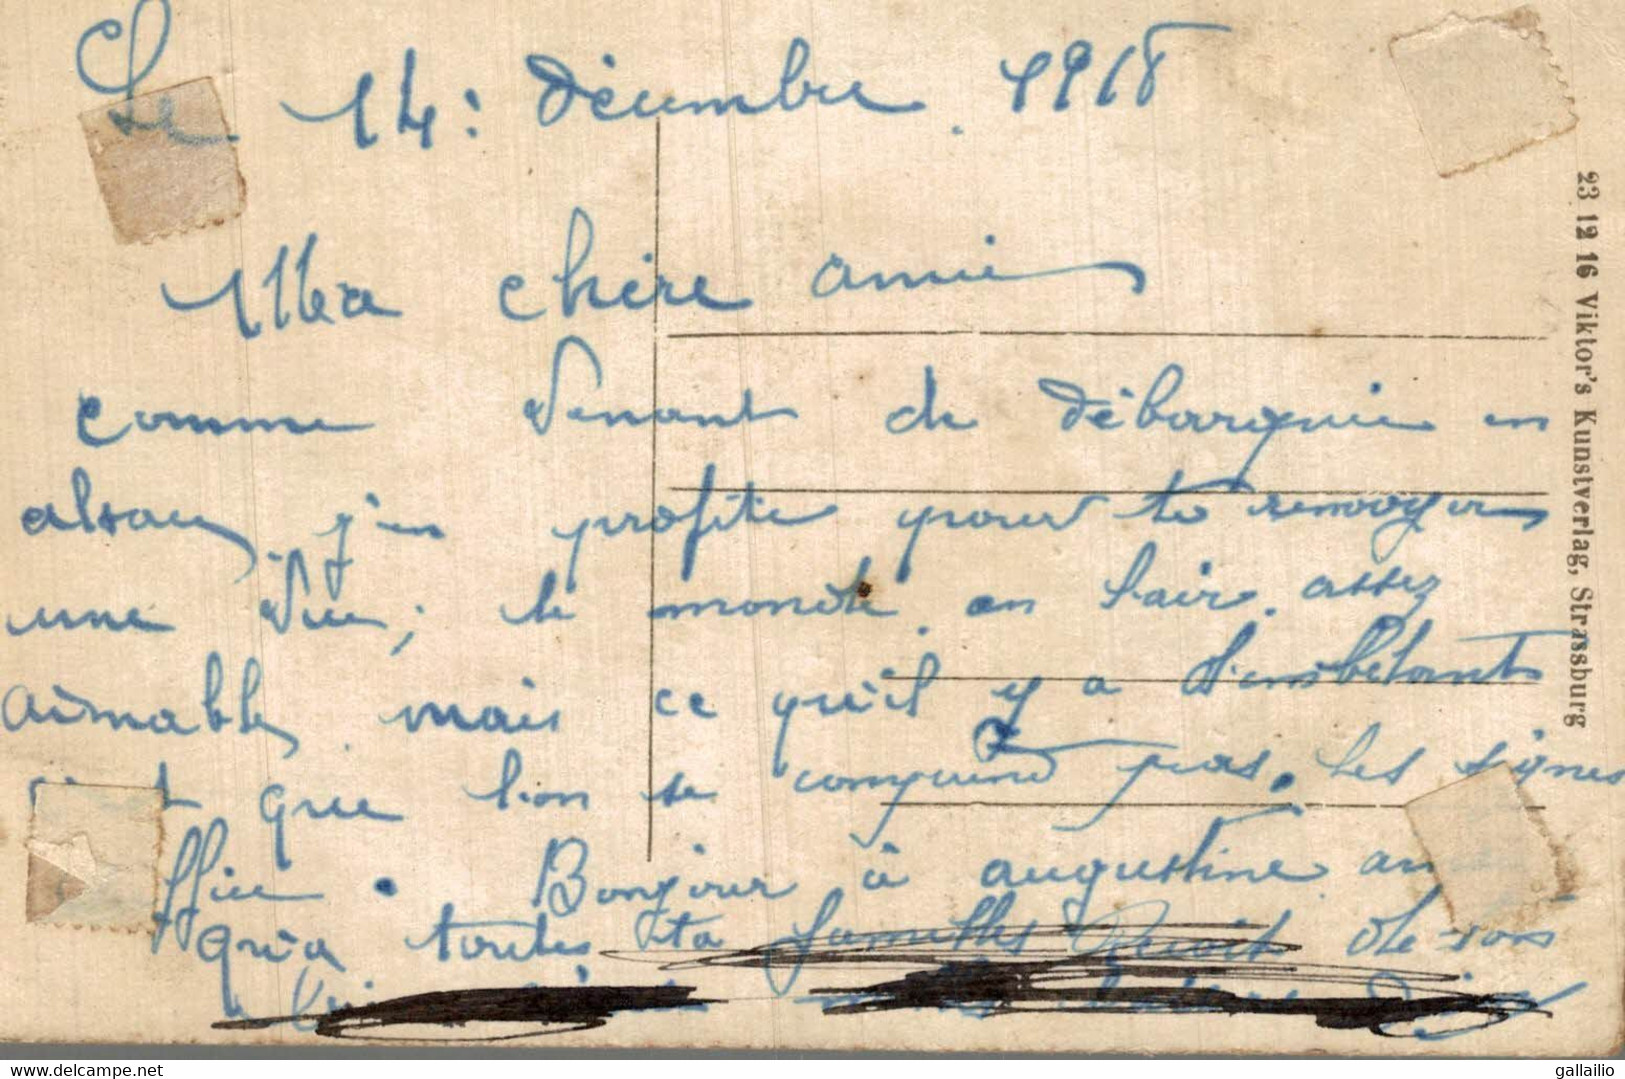 Le 14: décembre. 1918
Ma chère amie
comme venant de débarquer en
alsace j'en profite pour te renvoyer
une vue; le monde en l'air assez
aimable, mais ce qu'il y a d'embêtant
est que l'on se comprend pas, les signes
Bonjour à augustine
qu'a toutes ta familles Reçoit de ton
23 12 16 Viktor's Kunstverlag, Strassburg
delcampe.net
gallailio